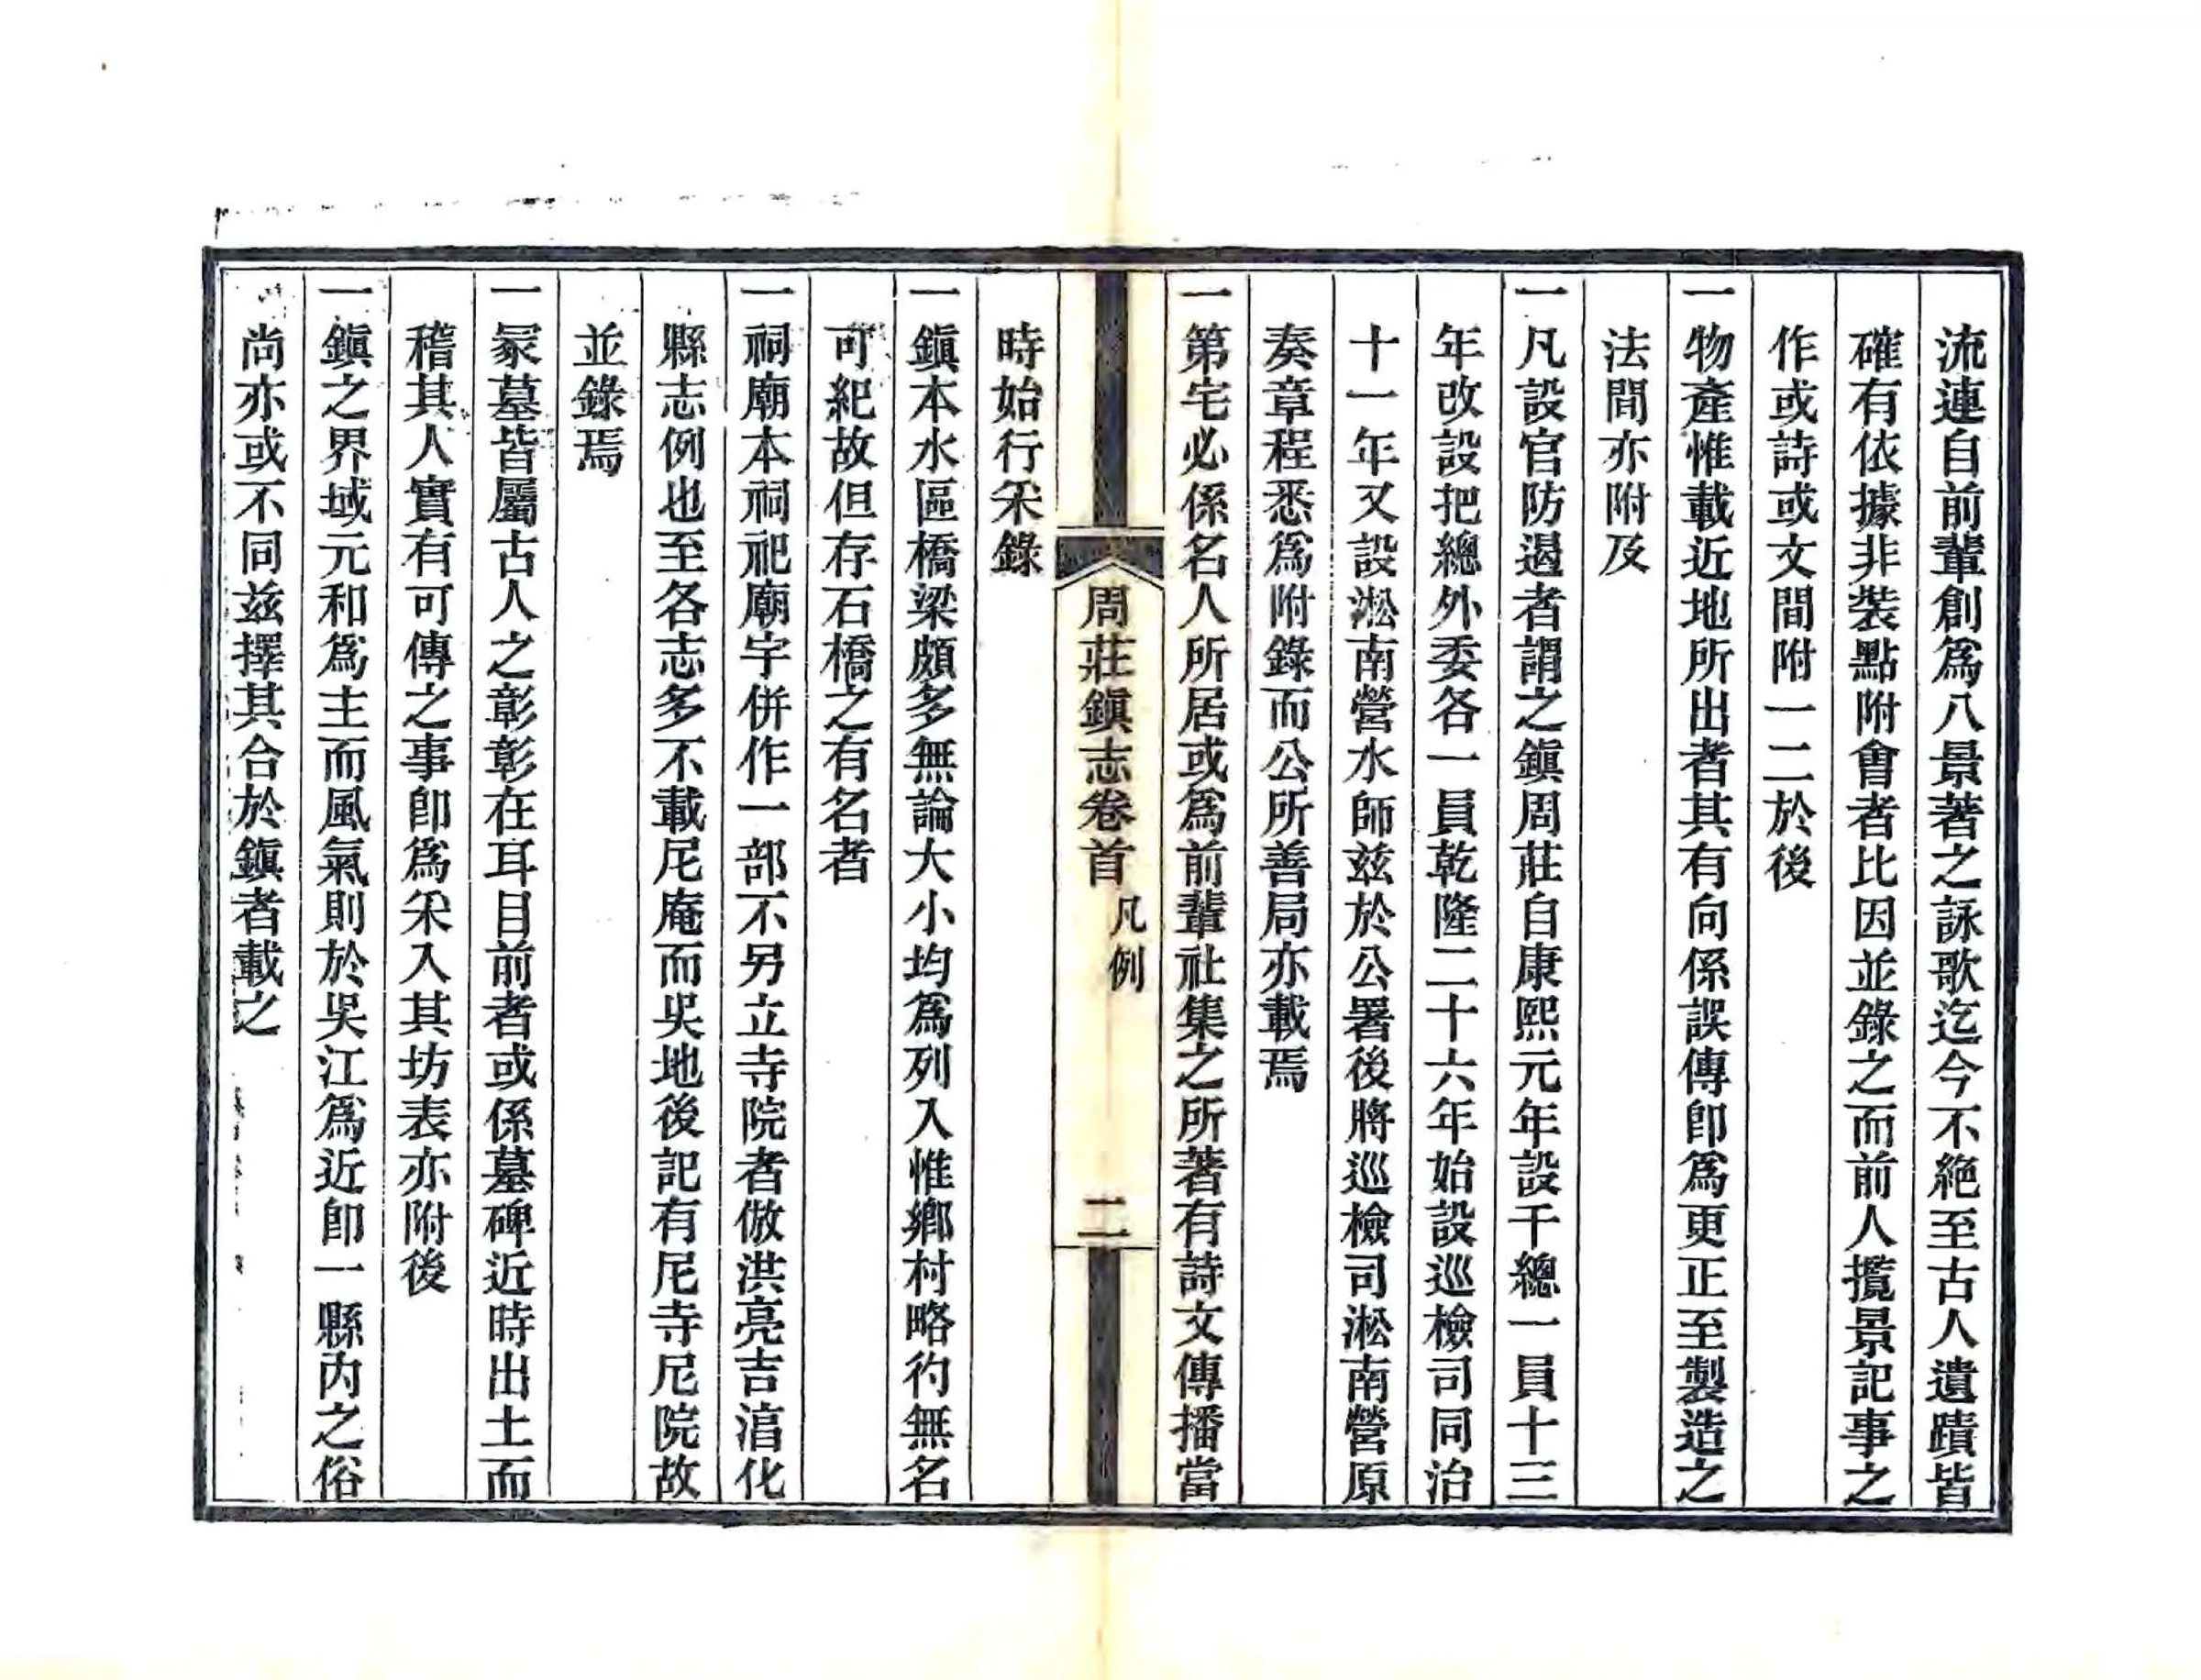 流連自前輩創爲八景著之詠歌迄今不絕至古人遺蹟皆
確有依據非裝點附會者比因並錄之而前人攬景記事之
作或詩或文間附一二於後
一物產惟載近地所出者其有向係誤傳卽爲更正至製造之
法間亦附及
一凡設官防遏者謂之鎭周莊自康熙元年設千總一員十三
年改設把總外委各一員乾隆二十六年始設巡檢司同治
十一年又設淞南營水師茲於公署後將巡檢司淞南營原
奏章程悉爲附錄而公所善局亦載焉
一第宅必係名人所居或爲前輩社集之所著有詩文傳播當
周莊鎭志卷首 凡例 二
時始行采錄
一鎭本水區橋梁頗多無論大小均爲列入惟鄉村略彴無名
可紀故但存石橋之有名者
一祠廟本祠祀廟宇併作一部不另立寺院者倣洪亮吉涫化
縣志例也至各志多不載尼庵而吳地後記有尼寺尼院故
並錄焉
一冢墓皆屬古人之彰彰在耳目前者或係墓碑近時出土而
稽其人實有可傳之事卽爲采入其坊表亦附後
一鎭之界域元和爲主而風氣則於吳江爲近卽一縣內之俗
尚亦或不同茲擇其合於鎭者載之